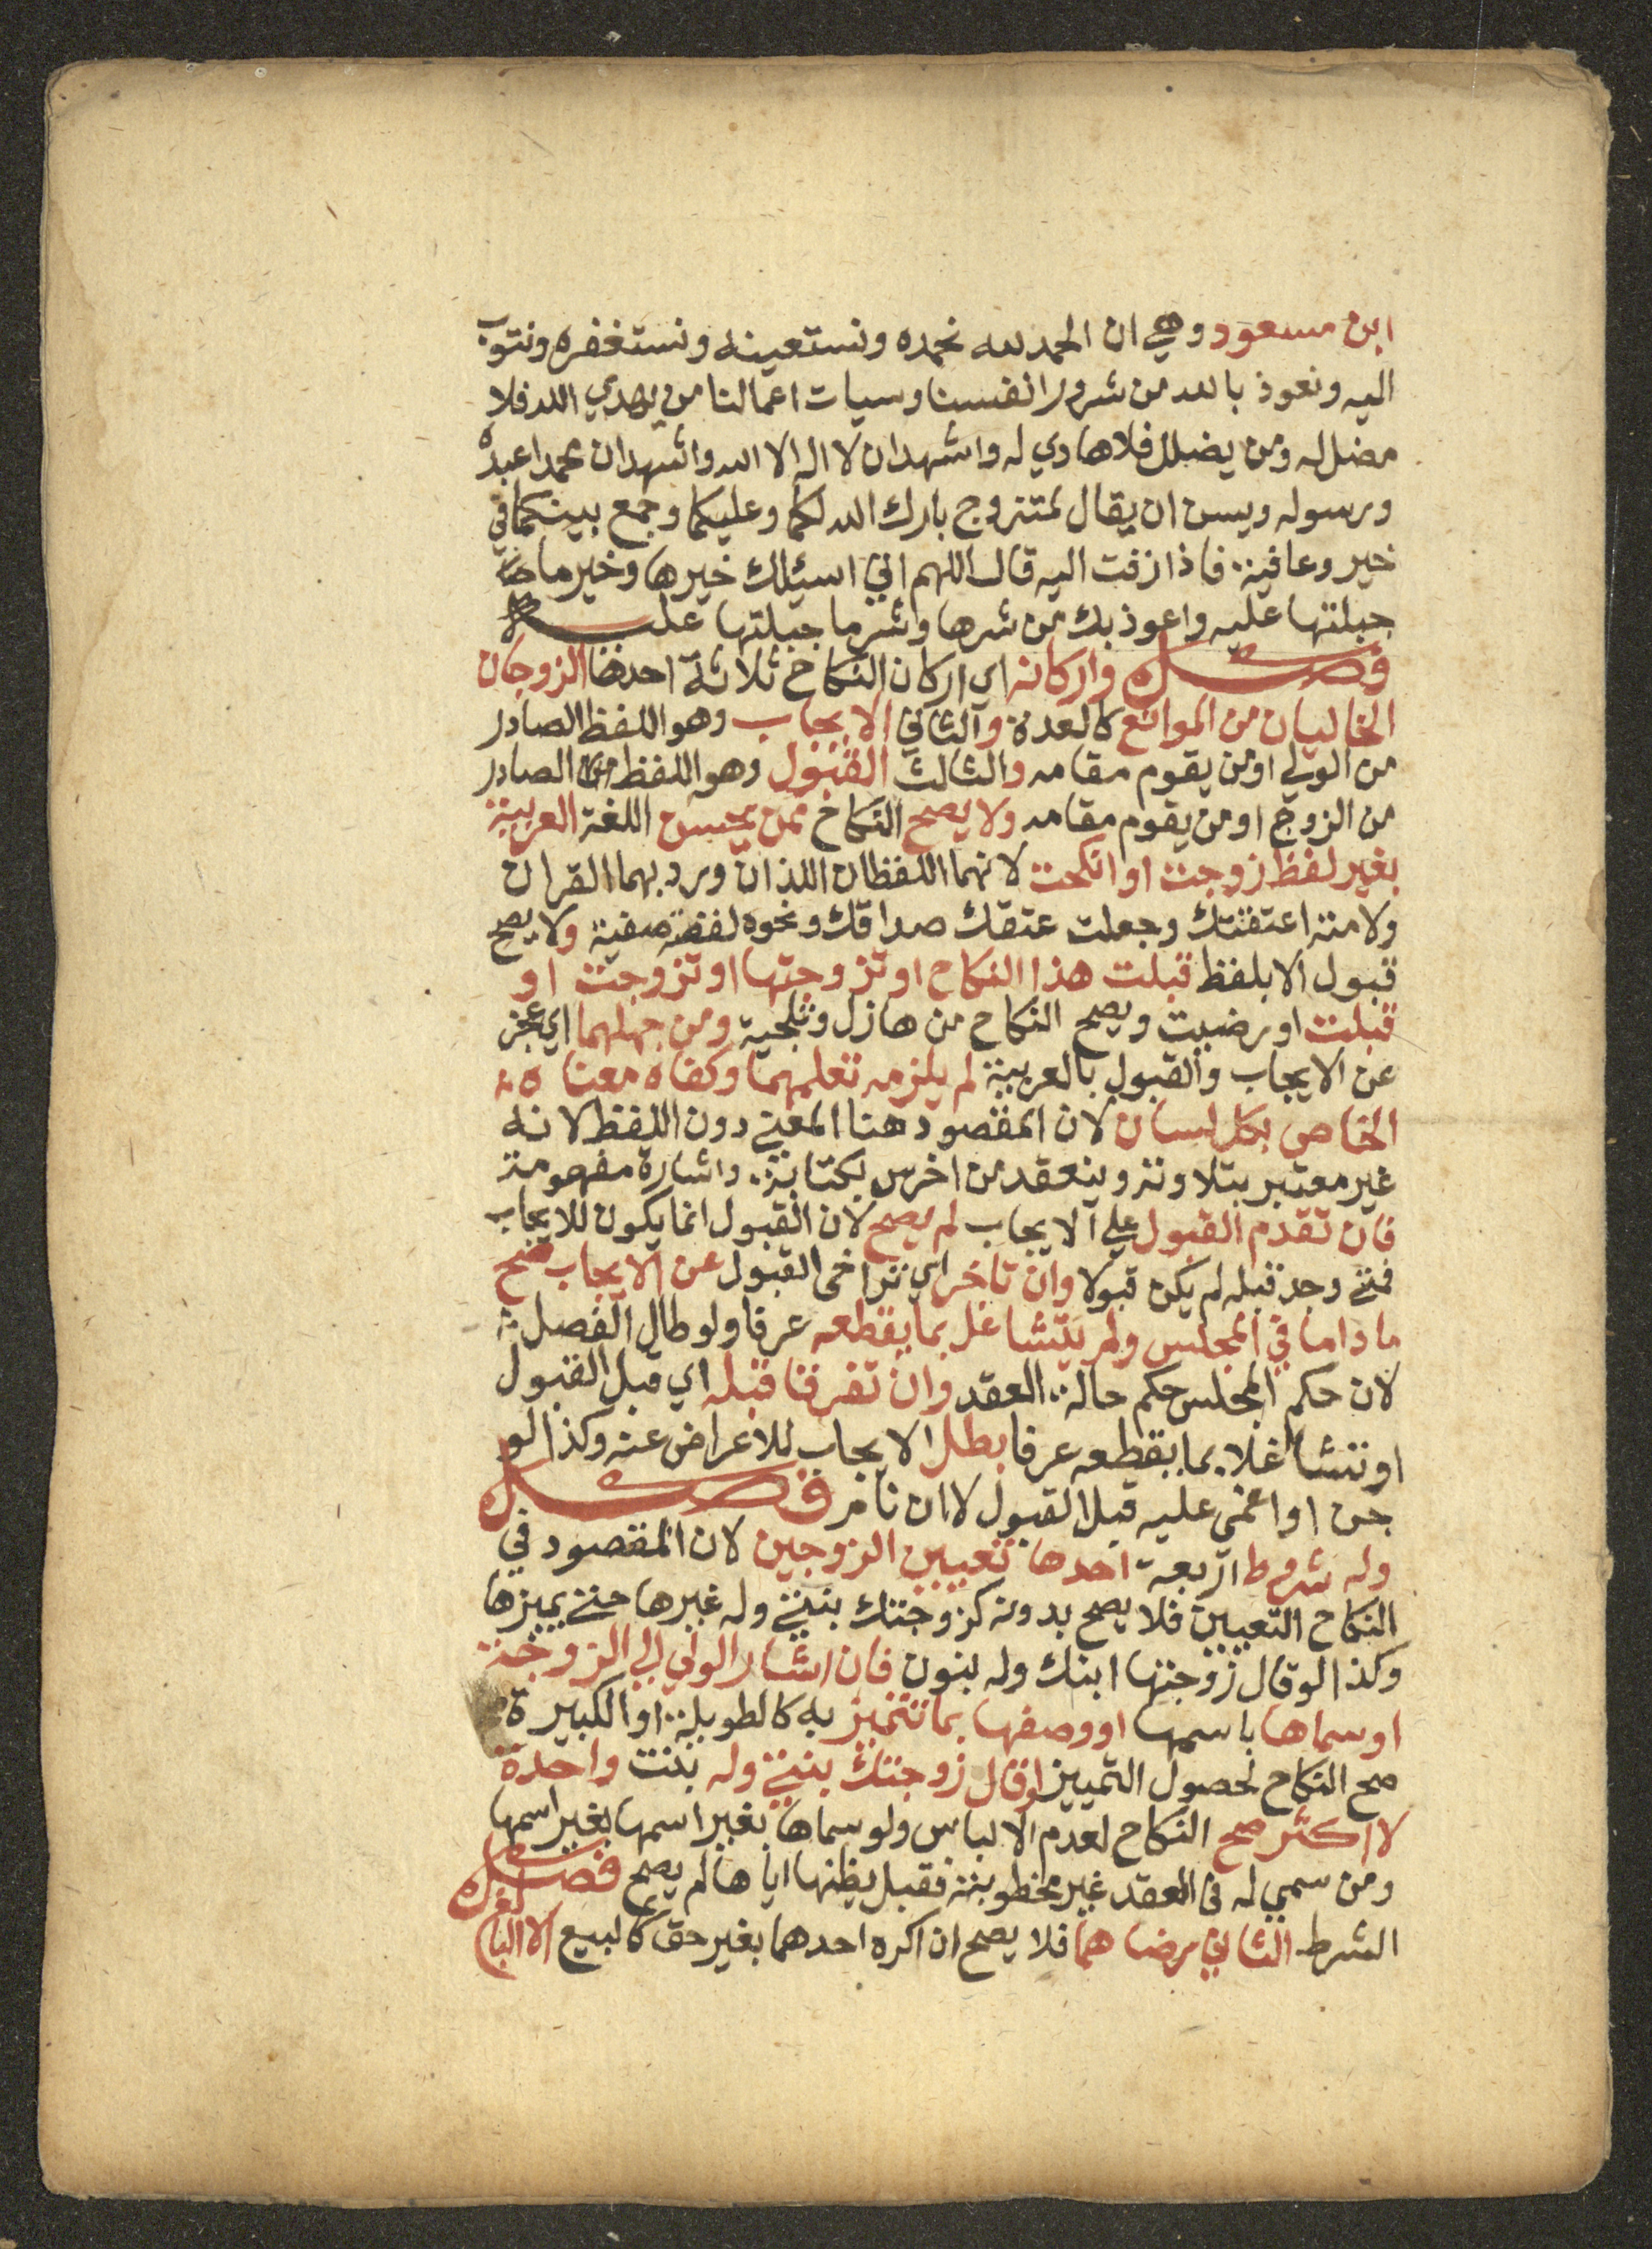 ابن مسعود وهي ان الحمد لله نحمده ونستعينه ونستغفره ونتوب
اليه ونعوذ بالله من شرور انفسنا وسيات اعمالنا من يهدي الله فلا
مضل له ومن يضلل فلا هادي له واشهد ان لا اله الا الله واشهد ان محمدا عبده
ورسوله ويسن ان يقال لمتزوج بارك الله لكما وعليكما وجمع بينكما في
خير وعافية فاذا زفت اليه قال اللهم اني اسئلك خيرها وخير ما
جبلتها عليه واعوذ بك من شرها وشر ما جبلتها عليه
فصل واركانه اي اركان النكاح ثلاثة احدها الزوجان
الخاليان من الموانع كالعدة والثاني الايجاب وهو اللفظ الصادر
من الولي او من يقوم مقامه والثالث القبول وهو اللفظ الصادر
من الزوج او من يقوم مقامه ولا يصح النكاح ممن يحسن اللغة العربية
بغير لفظ زوجت او انكحت لانهما اللفظان اللذان ورد بهما القران
ولامته اعتقتك وجعلت عتقك صداقك ونحوه لقصة صفية ولا يصح
قبول الا بلفظ قبلت هذا النكاح او تزوجتها او تزوجت او
قبلت او رضيت ويصح النكاح من هازل وتلجية ومن جهلهما اي عجز
عن الايجاب والقبول بالعربية لم يلزمه تعلمهما وكفاه معناه
الخاص بكل لسان لان المقصود هنا المعني دون اللفظ لانه
غير معتبر بتلاوته وينعقد من اخرس بكتابة واشارة مفهومة
فان تقدم القبول علي الايجاب لم يصح لان القبول انما يكون للايجاب
فمتي وجد قبله لم يكن قبولا وان تاخر اي تراخى القبول عن الايجاب صح
ما داما في المجلس ولم يتشاغلا بما يقطعه عرفا ولو طال الفصل
لان حكم المجلس حكم حالة العقد وان تفرقا قبله اي قبل القبول
او تشاغلا بما يقطعه عرفا بطل الايجاب للاعراض عنه وكذا لو
جن او اغمى عليه قبل القبول لا ان نام فصل
وله شروط اربعة احدها تعيين الزوجين لان المقصود في
النكاح التعيين فلا يصح بدونه كزوجتك بنتي وله غيرها حتي يميزها
وكذا لو قال زوجتها ابنك وله بنون فان اشار الولي الي الزوجة
او سماها باسمها او وصفها بما تتميز به كالطويلة او الكبيرة
صح النكاح لحصول التمييز او قال زوجتك بنتي وله بنت واحدة
لا اكثر صح النكاح لعدم الالباس ولو سماها بغير اسمها بغير اسمها
ومن سمي له في العقد غير مخطوبته فقبل يظنها اياها لم يصح فصل
الشرط الثاني رضاهما فلا يصح ان اكره احدهما بغير حق كالبيع الا البالغ